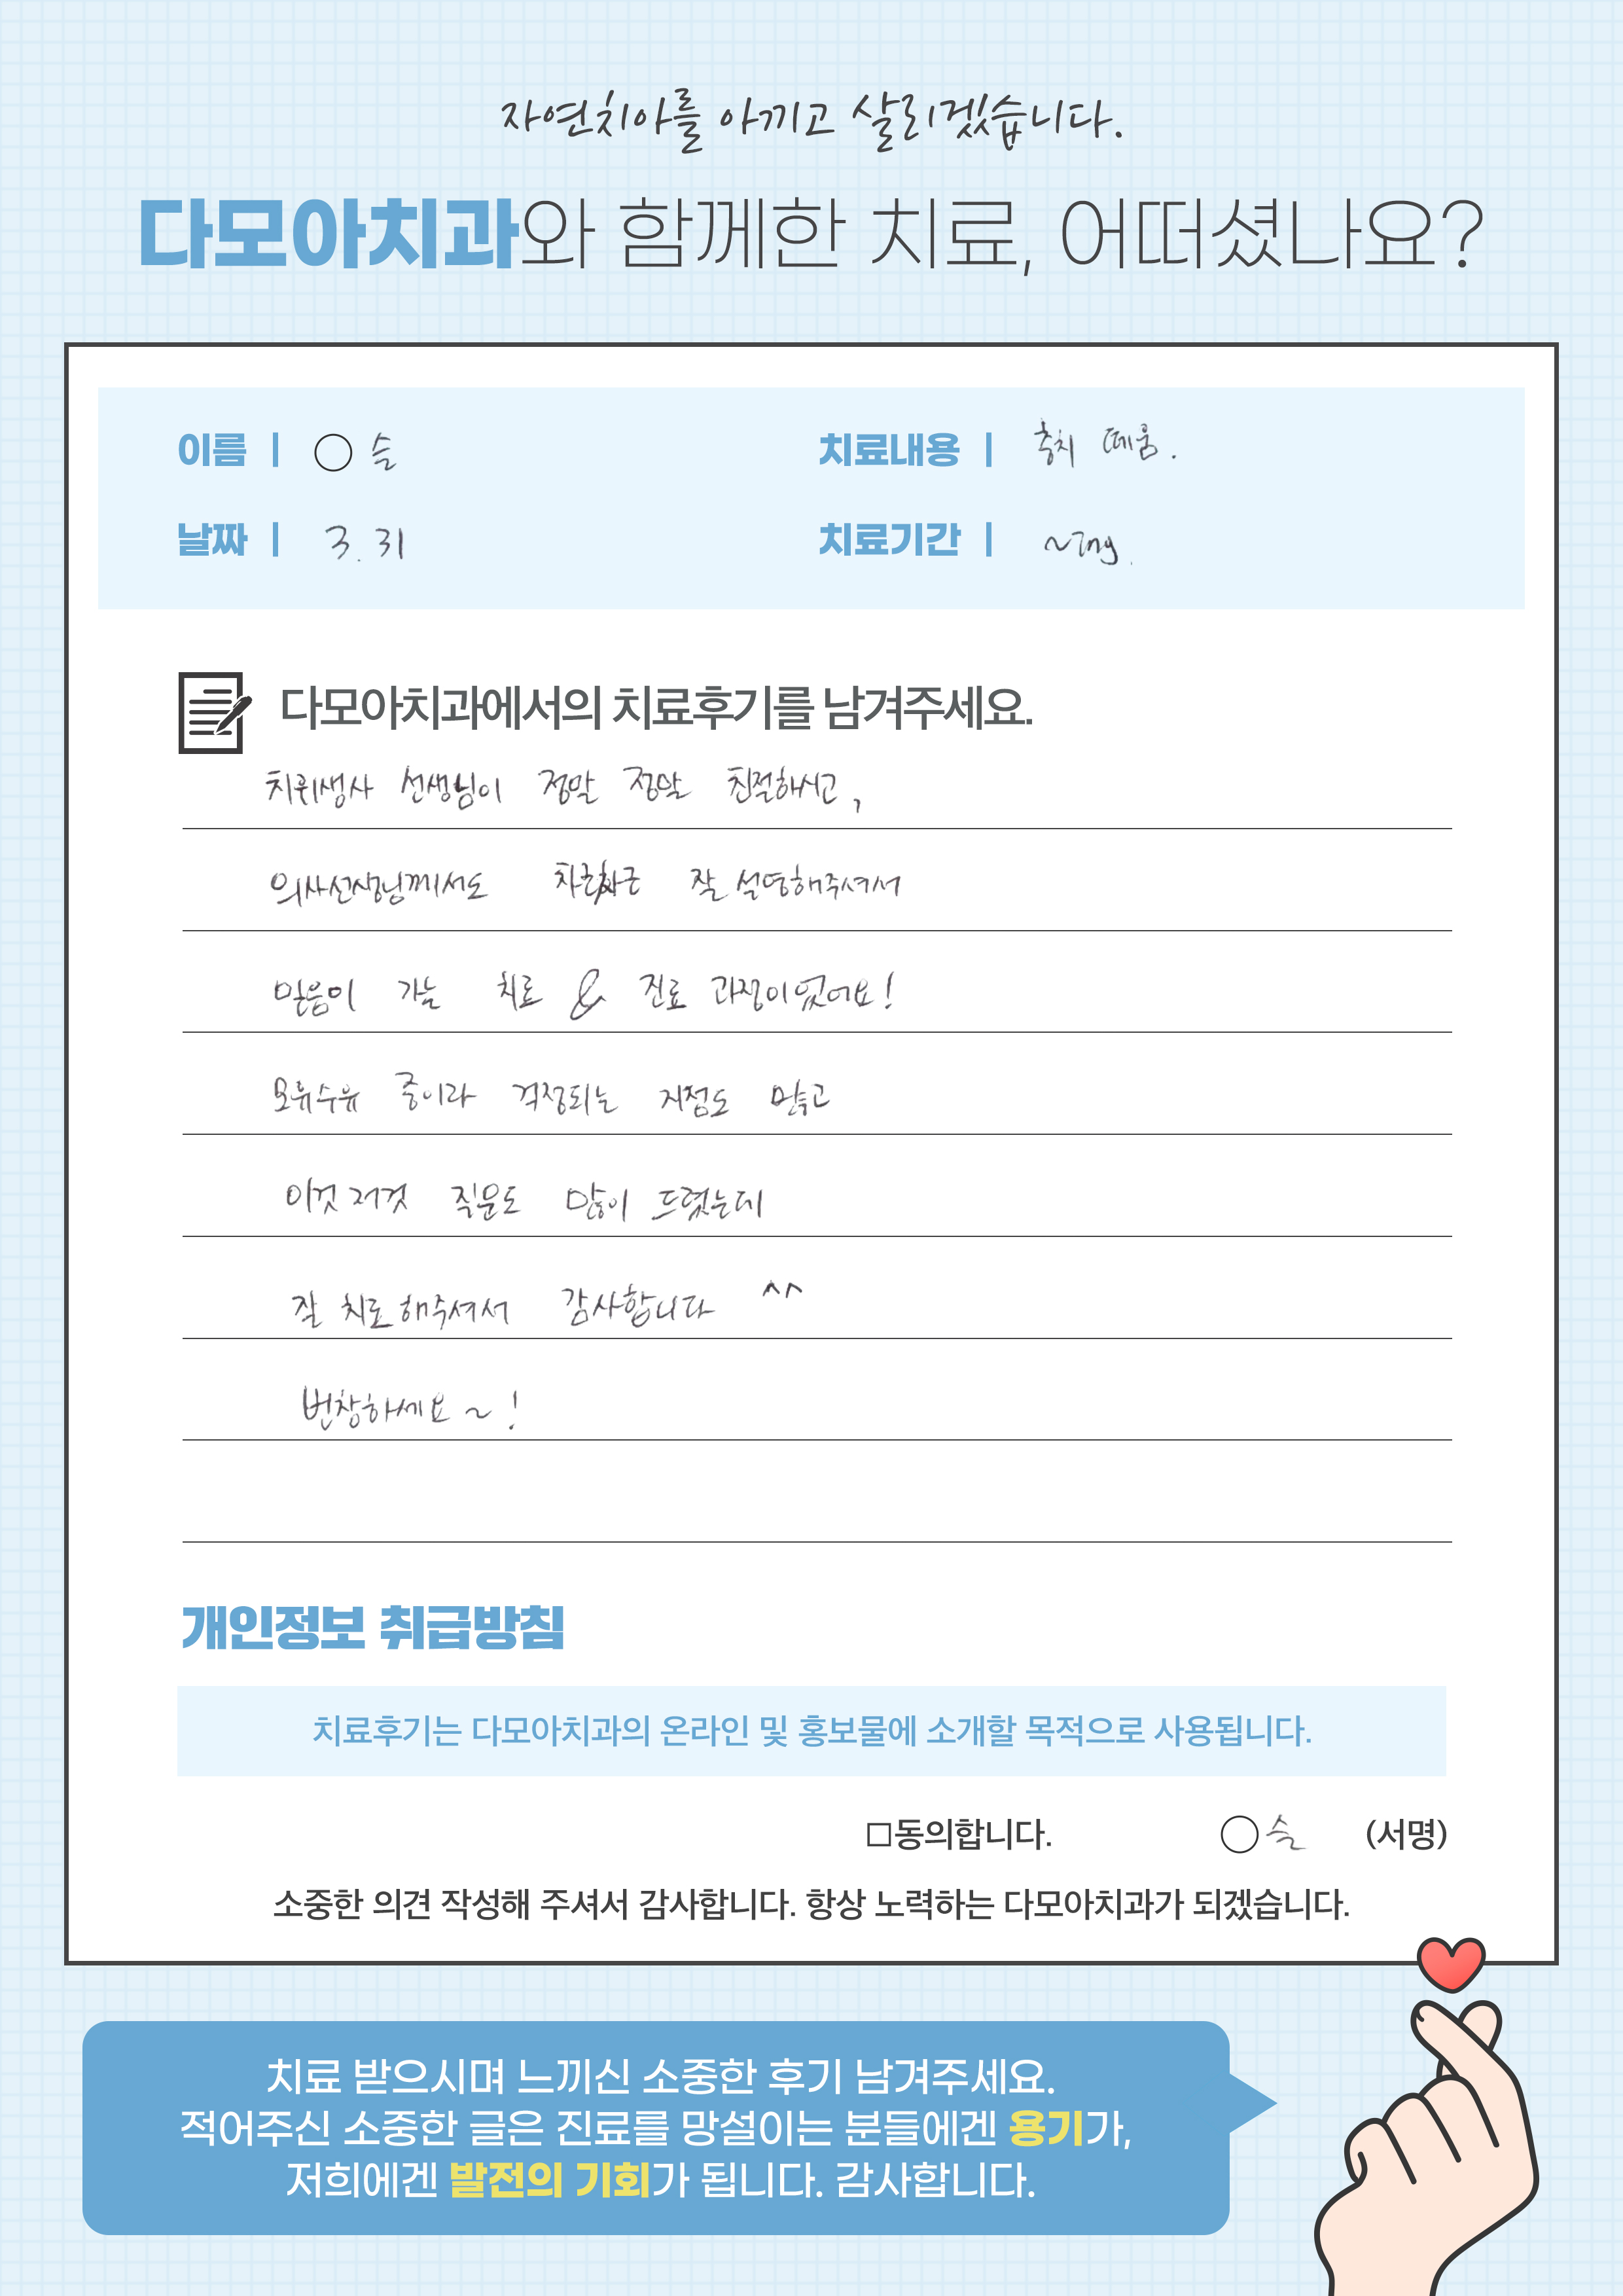 자연치아를 아끼고 살리겠습니다.
다모아치과와 함께한 치료, 어떠셨나요?
이름 | ○슬
치료내용 | 충치 떼움.
날짜 | 3. 31
치료기간 | ~ing.
다모아치과에서의 치료후기를 남겨주세요.
치위생사 선생님이 정말 정말 친절하시고,
의사선생님께서도 차근차근 잘 설명해주셔서
믿음이 가는 치료 & 진료 과정이었어요!
모유수유 중이라 걱정되는 지점도 많고
이것 저것 질문도 많이 드렸는데
잘 치료해주셔서 감사합니다 ^^
번창하세요~!
개인정보 취급방침
치료후기는 다모아치과의 온라인 및 홍보물에 소개할 목적으로 사용됩니다.
□동의합니다. ○슬 (서명)
소중한 의견 작성해 주셔서 감사합니다. 항상 노력하는 다모아치과가 되겠습니다.
치료 받으시며 느끼신 소중한 후기 남겨주세요.
적어주신 소중한 글은 진료를 망설이는 분들에겐 용기가,
저희에겐 발전의 기회가 됩니다. 감사합니다.